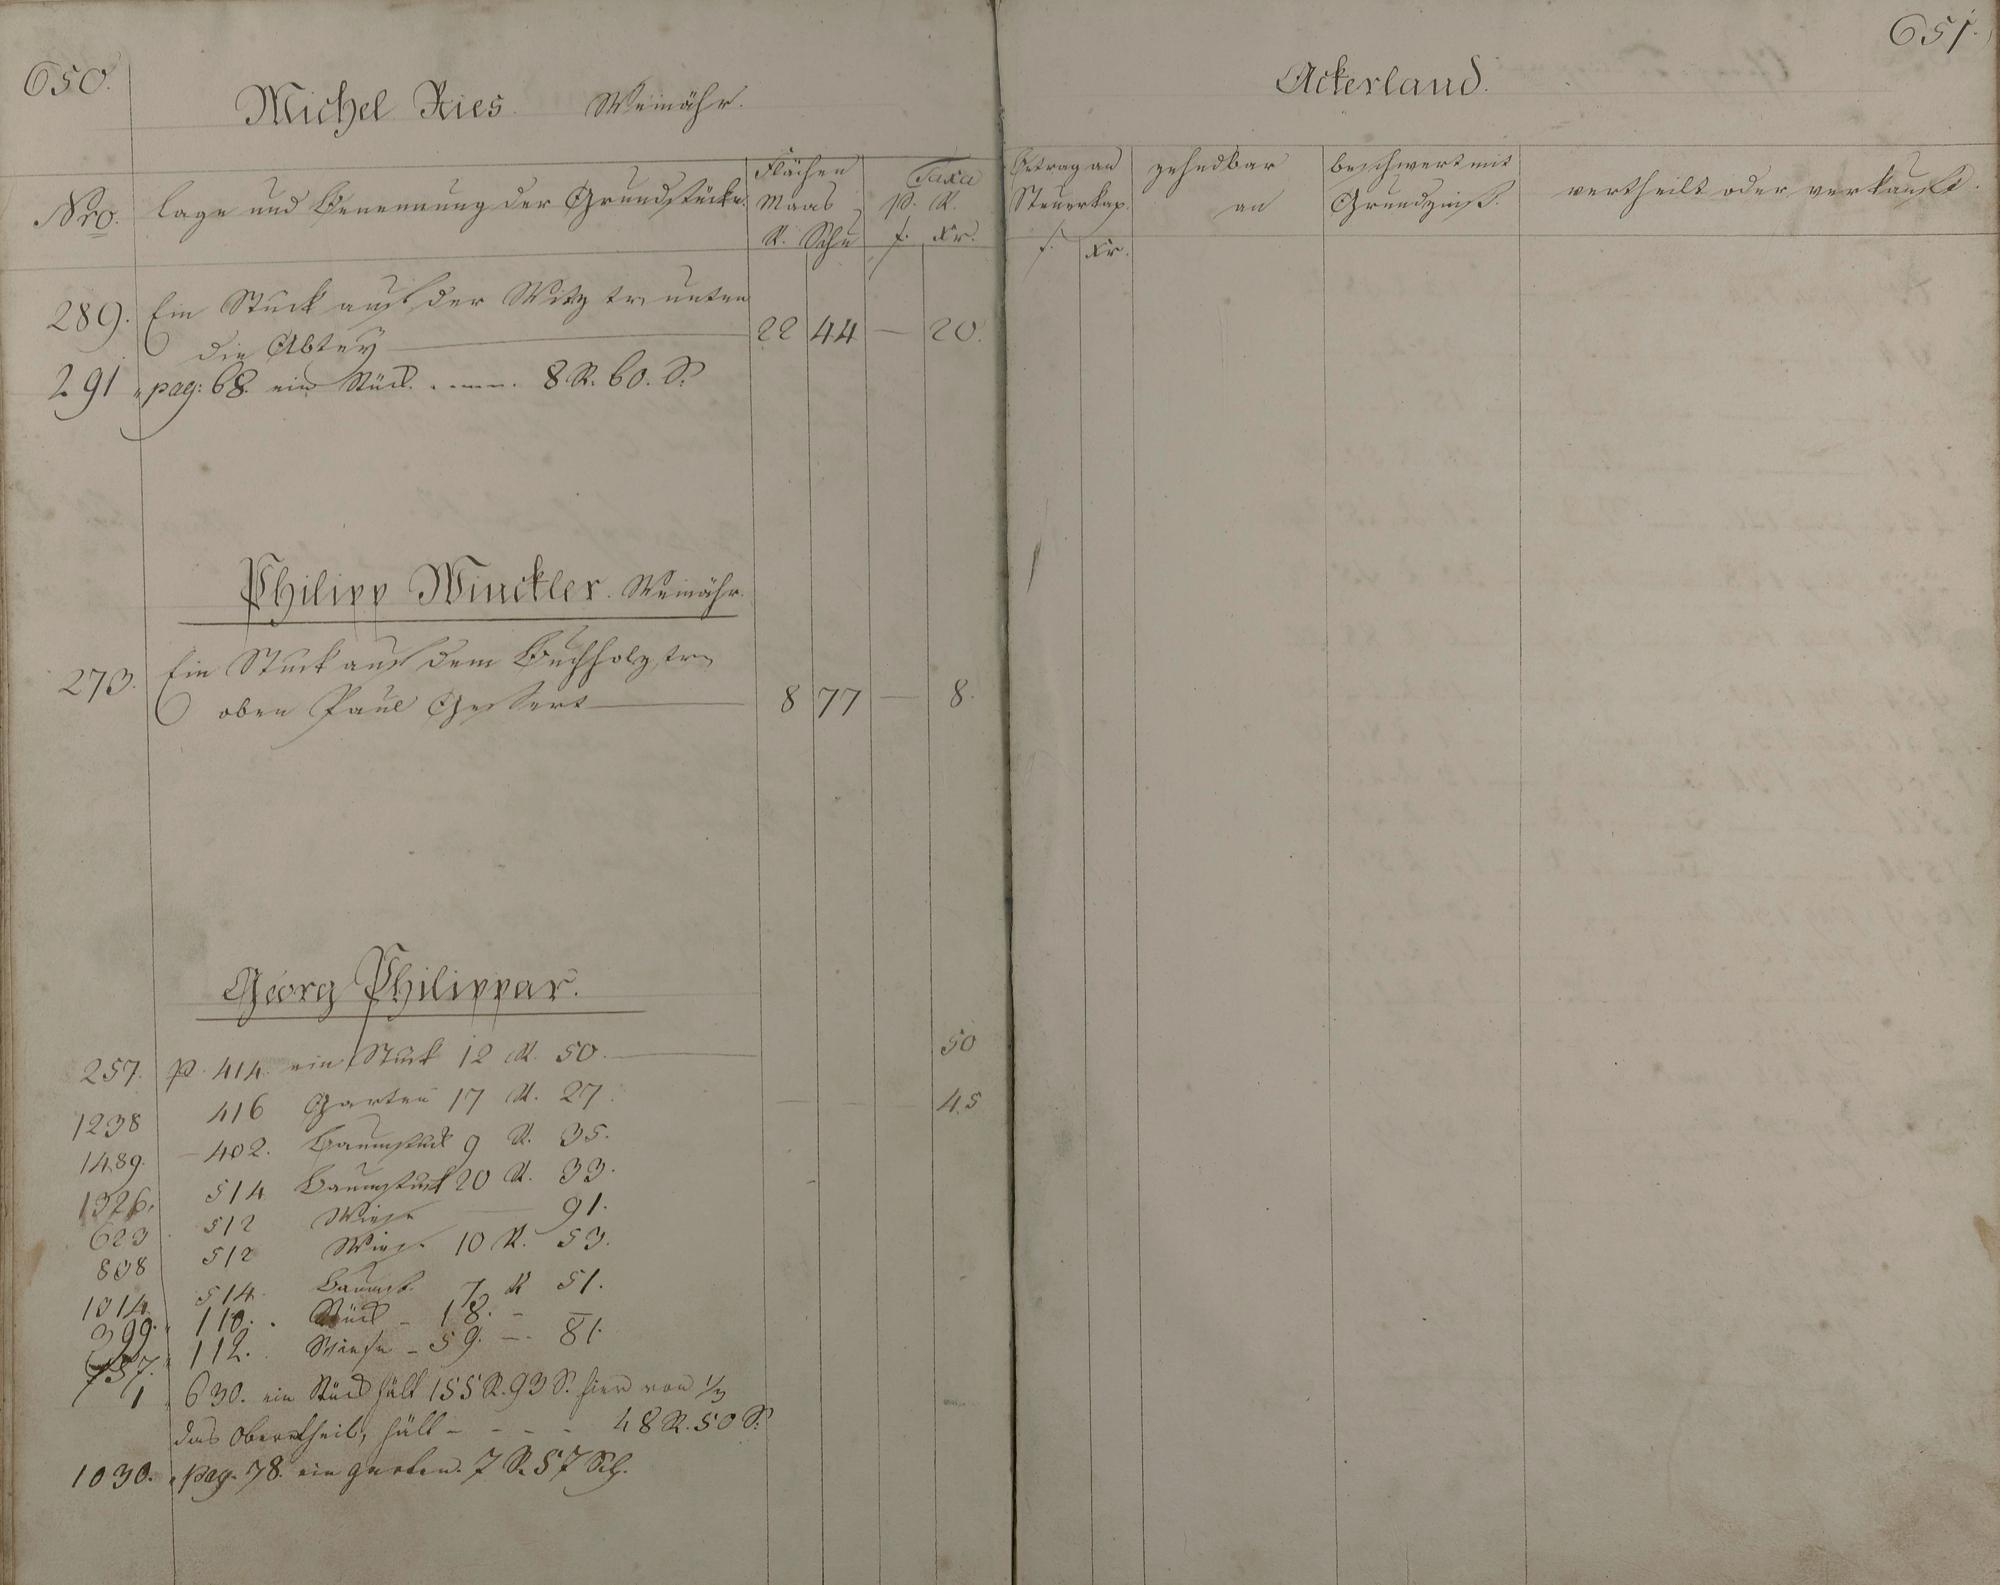 650.
Michel Ries. Weinähr.
Nro.
lage und Benennung der Grundstücke.
Flächen
Maas
R. Schu
Taxa
p. R.
f. Xr.
289. Ein Stuck auf der Witz tr. unten
die Abtey 22 44 — 20.
291 " pag: 68. ein Stück. . . . . 8 R. 60. S.
Philipp Winckler. Weinähr.
273. Ein Stuck auf dem Buchholz, tr.
oben Paul Gessert 8 77 — 8.
Georg Philippar.
257. p. 414. ein Stuck 12 R. 50. — 50
1238 416 Garten 17 R. 27. — — — 45
1489. — 402. Baumstuck 9 R. 35.
1326. 514 Baumstuck 20 R. 33.
623 512 Wiese — 91.
808 512 Wiese 10 R. 53.
1014. 514. Baumst. 7 R 51.
399. " 110. . Stück - 18. - —
737. " 112. . Wiese - 59. — . 81.
1 " 630. ein Stück hält 155 R. 93 S. hier von 1/3
das obere theil, hält - - - - 48 R. 50 S.
1030. " pag. 78. ein garten. 7 R. 57 Sch.
651.
Ackerland.
Betrag an
Steuerkap.
f. Xr.
zehndbar
an
beschwert mit
Grundzinß.
vertheilt oder verkauft.